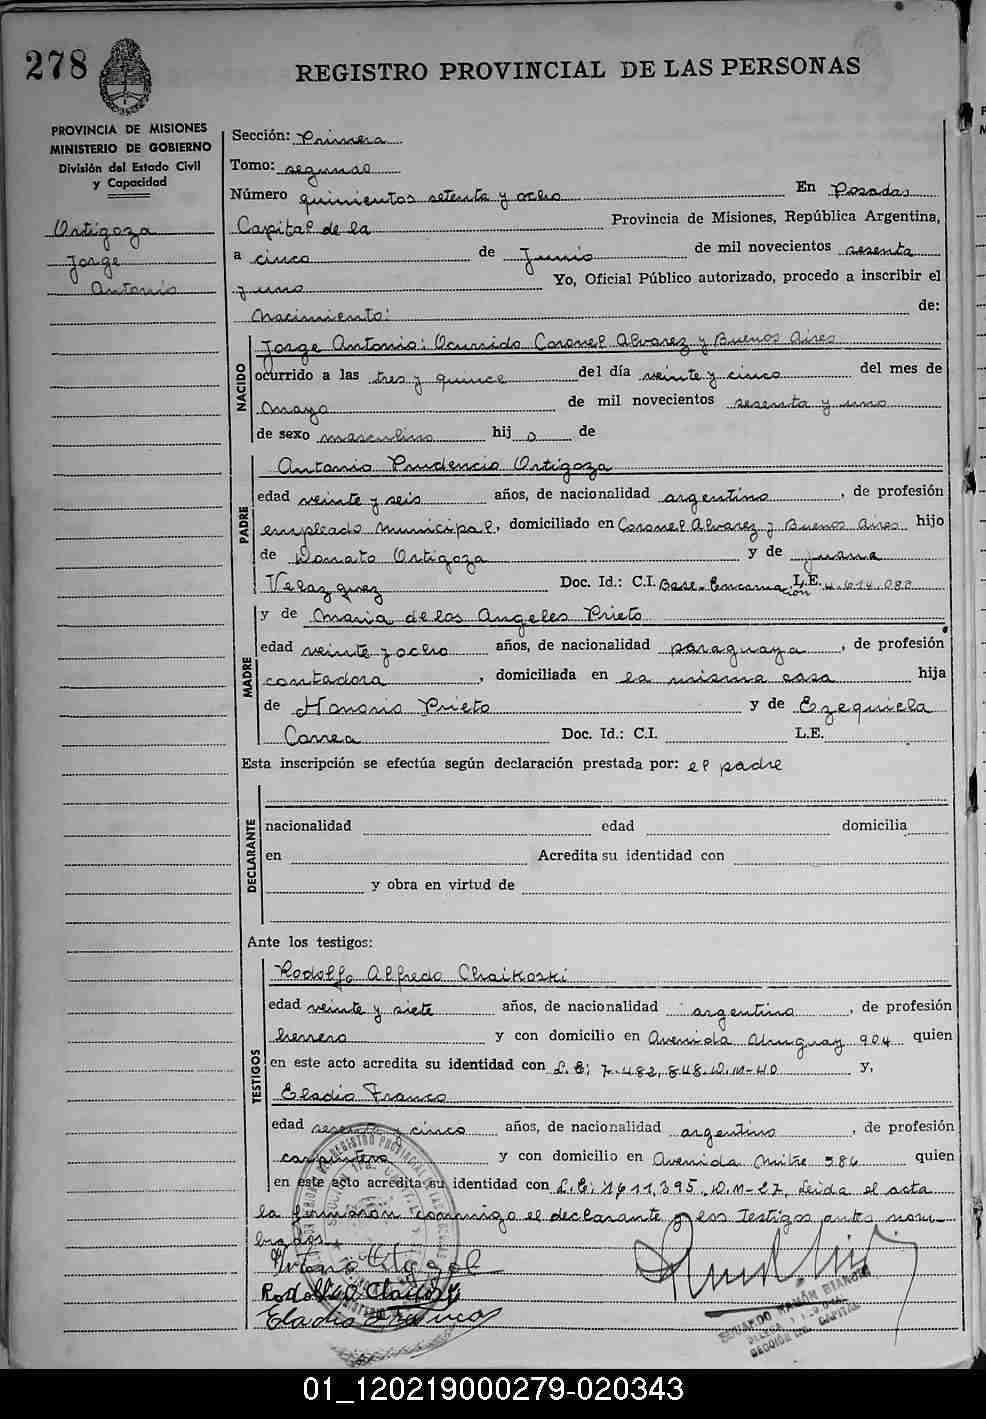 278
REGISTRO PROVINCIAL DE LAS PERSONAS
PROVINCIA DE MISIONES
MINISTERIO DE GOBIERNO
División del Estado Civil
y Capacidad
Ortigoza
Jorge
Antonio
Sección: Primera
Tomo: segundo
Número quinientos setenta y ocho En Posadas
Capital de la Provincia de Misiones, República Argentina,
a cinco de Junio de mil novecientos sesenta
y uno Yo, Oficial Público autorizado, procedo a inscribir el
Nacimiento: de:
NACIDO
Jorge Antonio: Ocurrido Coronel Alvarez y Buenos Aires
ocurrido a las tres y quince del día veinte y cinco del mes de
Mayo de mil novecientos sesenta y uno
de sexo masculino hij o de
PADRE
Antonio Prudencio Ortigoza
edad veinte y seis años, de nacionalidad argentino, de profesión
empleado municipal, domiciliado en Coronel Alvarez y Buenos Aires hijo
de Donato Ortigoza y de Juana
Velazquez Doc. Id.: C.I. Base-Encarnación L.E. 4.614.088
MADRE
y de Maria de los Angeles Prieto
edad veinte y ocho años, de nacionalidad paraguaya, de profesión
contadora, domiciliada en la misma casa hija
de Honorio Prieto y de Ezequiela
Correa Doc. Id.: C.I. L.E.
Esta inscripción se efectúa según declaración prestada por: el padre
DECLARANTE
nacionalidad edad domicilia
en Acredita su identidad con
y obra en virtud de
Ante los testigos:
TESTIGOS
Rodolfo Alfredo Chaikoski
edad veinte y siete años, de nacionalidad argentino, de profesión
herrero y con domicilio en Avenida Uruguay 904 quien
en este acto acredita su identidad con L.E: 7.482.848.D.M-40 y,
Eladio Franco
edad sesenta y cinco años, de nacionalidad argentino, de profesión
carpintero y con domicilio en Avenida Mitre 586 quien
en este acto acredita su identidad con L.E: 1611.395.D.M-27, Leida el acta
la firmaron conmigo el declarante y los Testigos antes nom-
brados.
Eladio Franco
EDUARDO RAMÓN BIANCHI
SECCIÓN CAPITAL
01_120219000279-020343